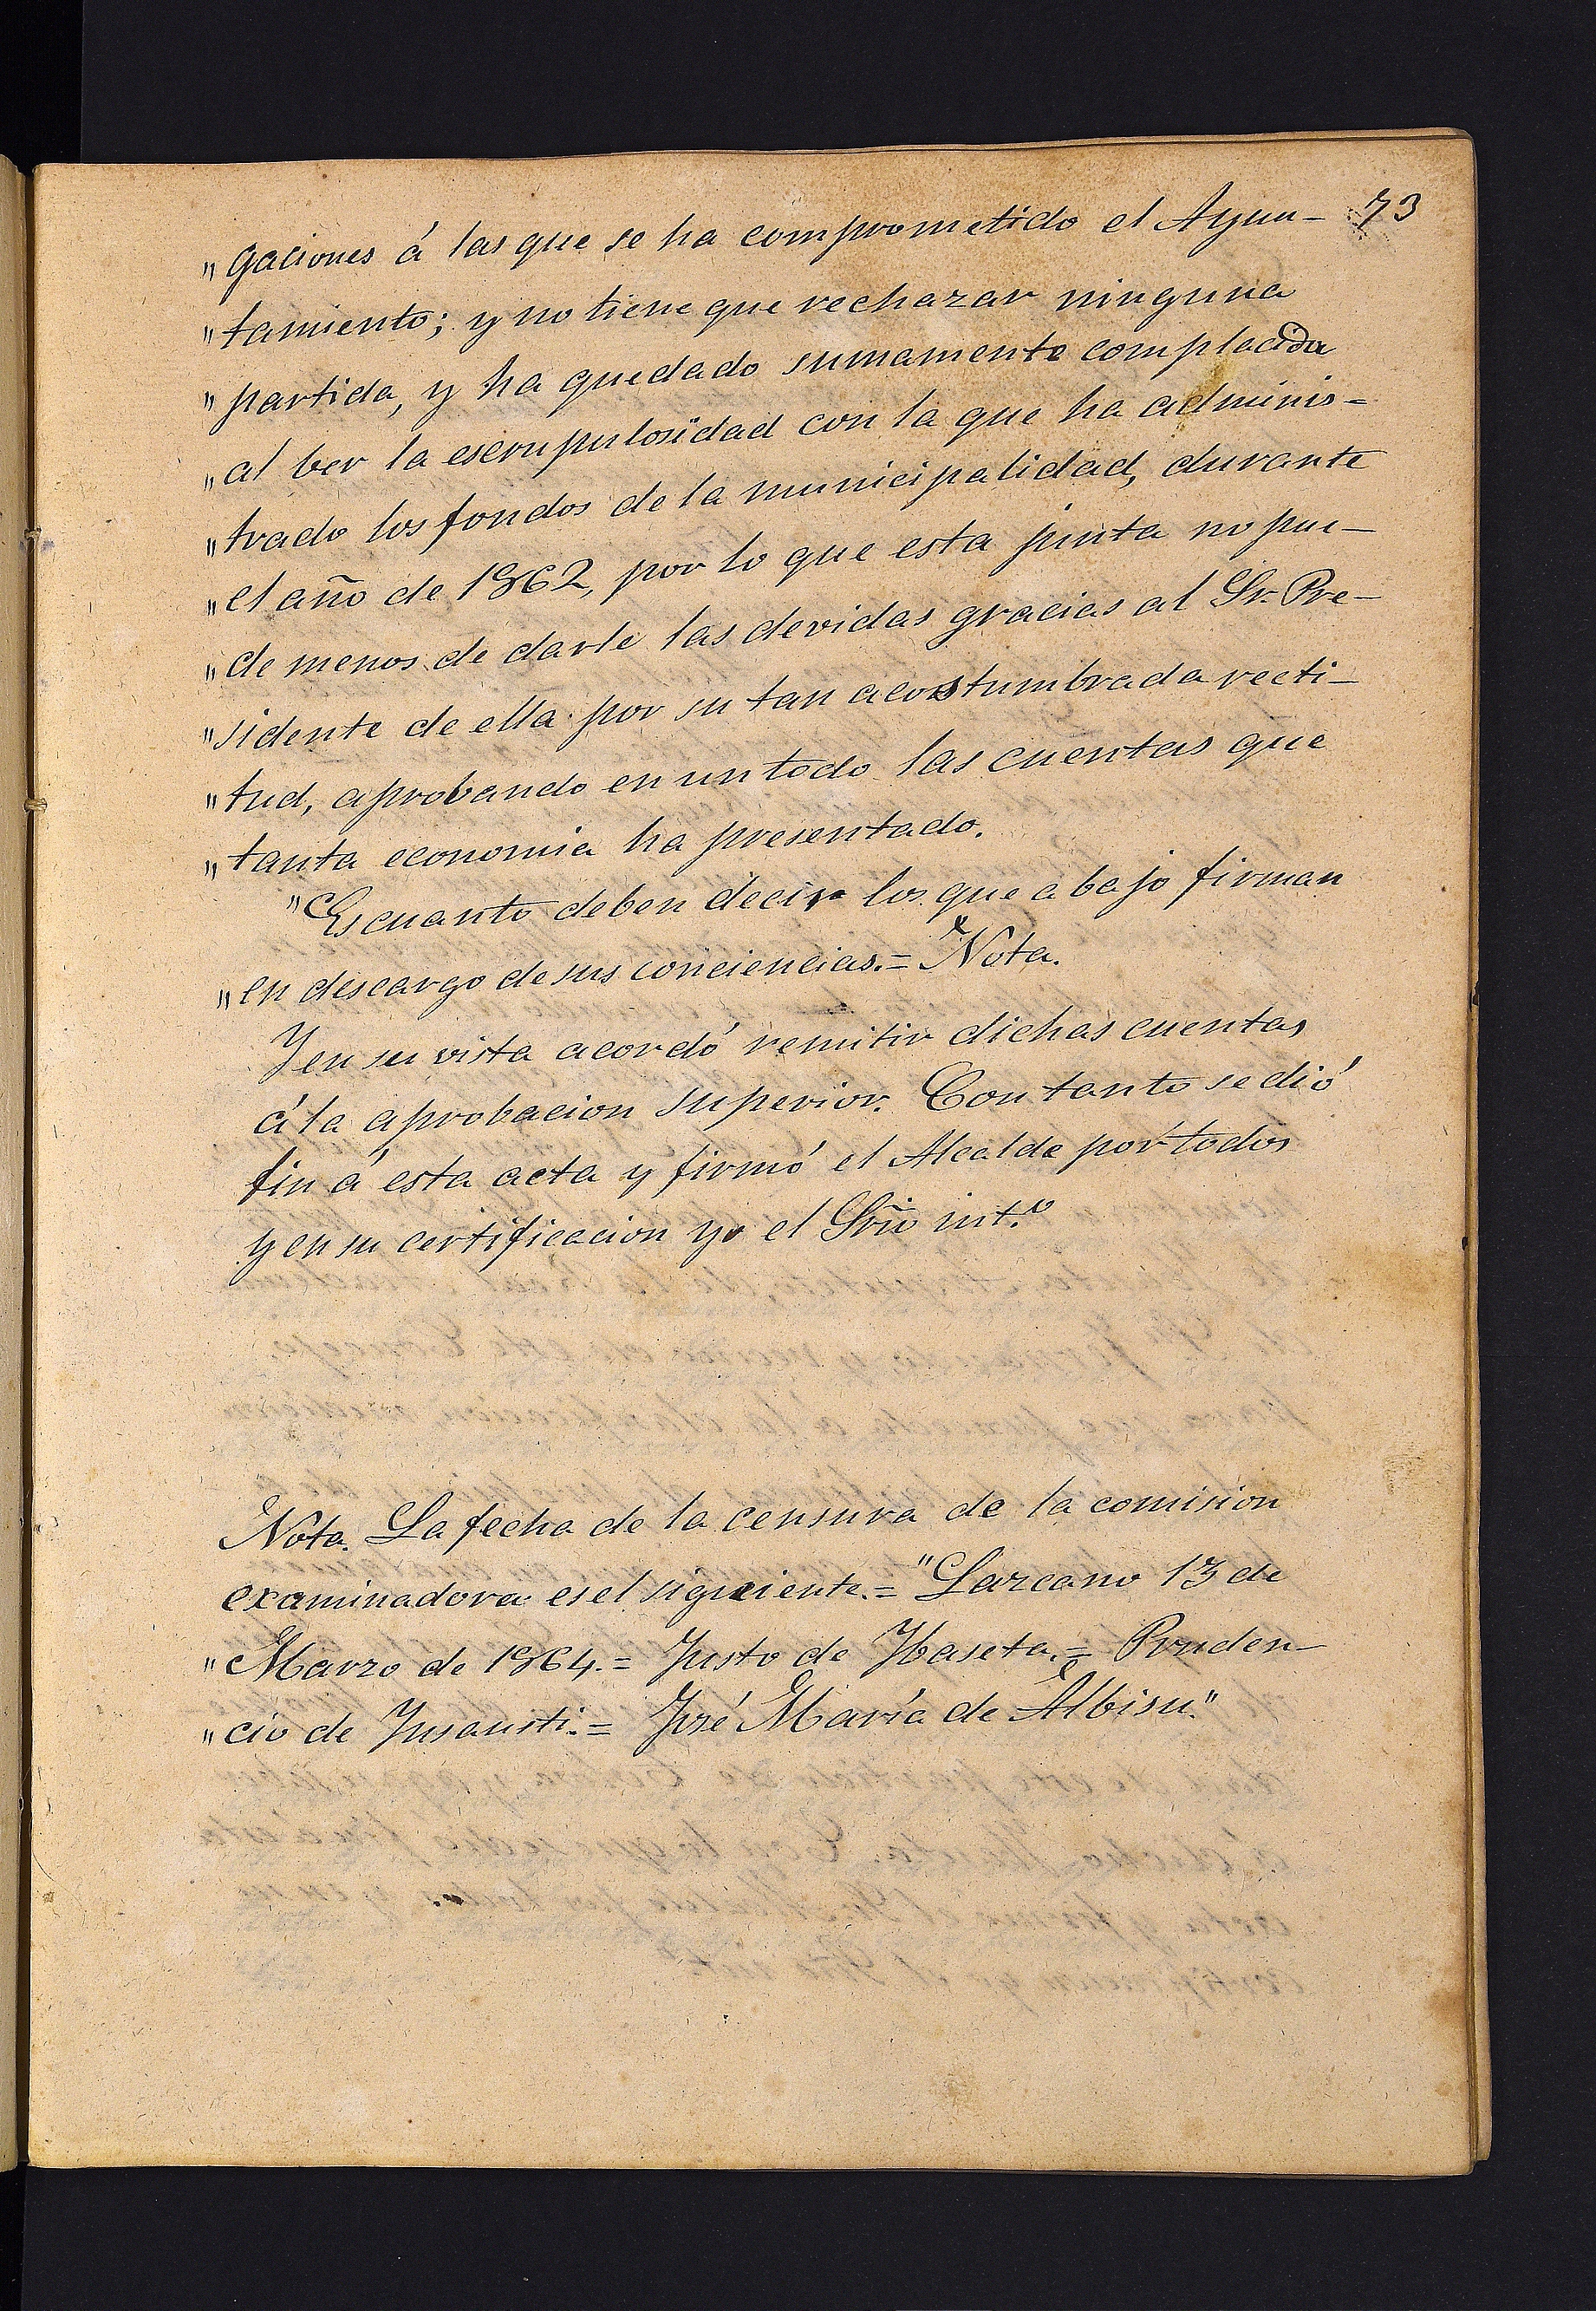 73
"gaciones á las que se ha comprometido el Ayun-
"tamiento; y no tiene que rechazar ninguna
"partida, y ha quedado sumamente complacida
"al ber la escrupulosidad con la que ha adminis-
"trado los fondos de la municipalidad, durante
"el año de 1862, por lo que esta junta no pue-
"de menos de darle las devidas gracias al Sr. Pre-
"sidente de ella por su tan acostumbrada recti-
"tud, aprobando en un todo las cuentas que
"tanta economia ha presentado.
"Es cuanto deben decir los que abajo firman
"en descargo de sus conciencias.= Nota.
Y en su vista acordó remitir dichas cuentas
á la aprobacion superior. Con tanto se dió
fin á esta acta y firmó el Alcalde por todos
y en su certificacion yo el Srio int.º
Nota. La fecha de la censura de la comision
examinadora es el siguiente.= "Lazcano 13 de
"Marzo de 1864.= Justo de Ybaseta.= Pruden-
"cio de Ynsausti.= José María de Albisu."